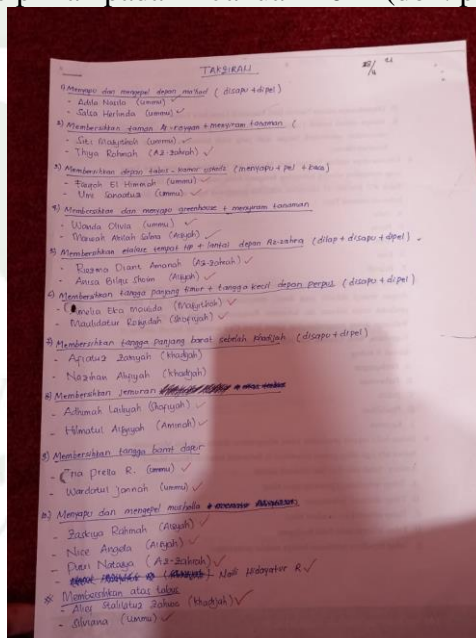 TAKZIRAN
1) Menyapu dan mengepel depan ma'had ( disapu + dipel )
- Adila Nasila (ummu) ✓
- Salsa Herlinda (ummu) ✓
2) Membersihkan taman Ar-rayyan + menyiram tanaman (
- Siti (ummu) ✓
- Thiya Rohmah (Az-zahrah) ✓
3) Membersihkan depan (menyapu + pel + kaca)
- Faiqoh El Himmah (ummu) ✓
- Umi Sanaatuz (ummu) ✓
4) Membersihkan dan menyapu greenhouse + menyiram tanaman
- Wanda Olivia (ummu) ✓
- Marwah Salma (Aisyah) ✓
5) Membersihkan etalase tempat HP + lantai depan Az-zahra (dilap + disapu + dipel)
- Rusma Diant Amanah (Az-zahrah) ✓
- Anisa Bilqis (Aisyah) ✓
6) Membersihkan tangga panjang timur + tangga kecil depan perpus (disapu + dipel)
- Amelia Eka ✓
- Maulidatur Rofiydah (Shofiyah) ✓
7) Membersihkan tangga panjang barat sebelah khadijah (disapu + dipel)
- Afiatuz Zaniyah (khadijah)
- Nazihan Alfiyah (khadijah)
8) Membersihkan jemuran
- Adhimah Lailiyah (Shofiyah) ✓
- Hilmatul Alfiyyah (Aminah) ✓
9) Membersihkan tangga barat dapur
- Prella R. (ummu) ✓
- Wardatul Jannah (ummu) ✓
10) Menyapu dan mengepel musholla
- Zaskiya Rahmah (Aisyah) ✓
- Nice Angela (Aisyah) ✓
- Putri Natasya (Az-zahrah) ✓
- Hidayatur R ✓
Membersihkan atas
- Aliey Zahwa (khadijah) ✓
- Silviana (ummu) ✓